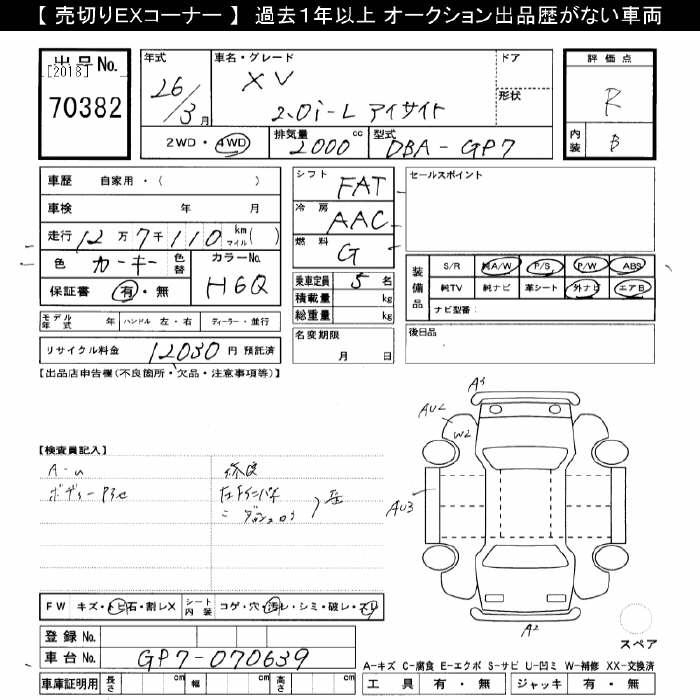 【 売切りEXコーナー 】 過去１年以上 オークション出品歴がない車両
出品No.
[2018]
70382
年式
26/3月
車名・グレード
XV
2.0i-L アイサイト
ドア
形状
評価点
R
内装
B
2WD・4WD
排気量
2000 cc
型式
DBA-GP7
車歴 自家用・( )
車検 年 月
走行 12万7千110 km マイル( )
色 カーキー 色替
カラーNo.
H6Q
保証書 有・無
シフト FAT
冷房 AAC
燃料 G
乗車定員 5 名
積載量 kg
総重量 kg
名変期限
月 日
セールスポイント
装備品
S/R 純A/W P/S P/W ABS
純TV 純ナビ 革シート 外ナビ エアB
ナビ型番:
後日品
モデル年式 年 ハンドル 左・右 ディーラー・並行
リサイクル料金 12030 円 預託済
【出品店申告欄(不良箇所・欠品・注意事項等)】
【検査員記入】
A-u
ボディー
A3
AU2
W2
AU3
A2
FW キズ・トビ石・割レX シート内装 コゲ・穴・汚レ・シミ・破レ・スレ
登録 No.
車台 No. GP7-070639
車庫証明用 長さ cm 幅 cm 高さ cm
スペア
A-キズ C-腐食 E-エクボ S-サビ U-凹ミ W-補修 XX-交換済
工具 有・無 ジャッキ 有・無